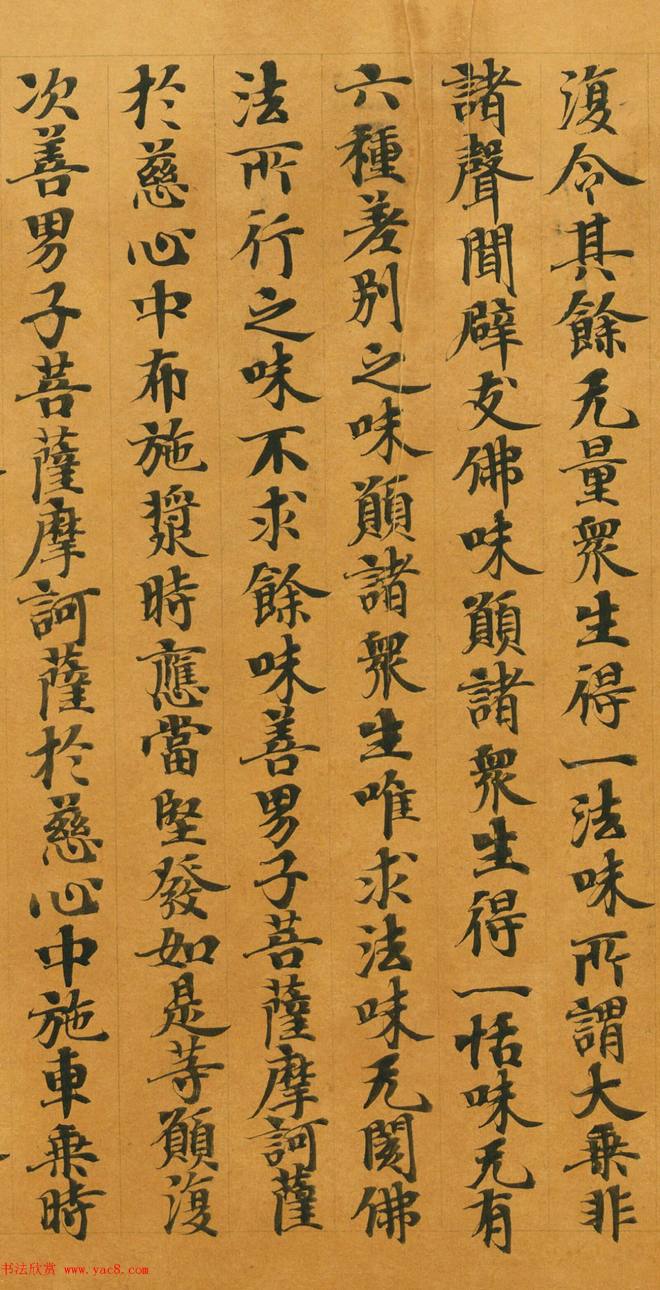 復令其餘无量衆生得一法味所謂大乘非
諸聲聞辟支佛味願諸衆生得一恬味无有
六種差別之味願諸衆生唯求法味无閡佛
法所行之味不求餘味善男子菩薩摩訶薩
於慈心中布施漿時應當堅發如是等願復
次善男子菩薩摩訶薩於慈心中施車乘時
书法欣赏 www.yac8.com